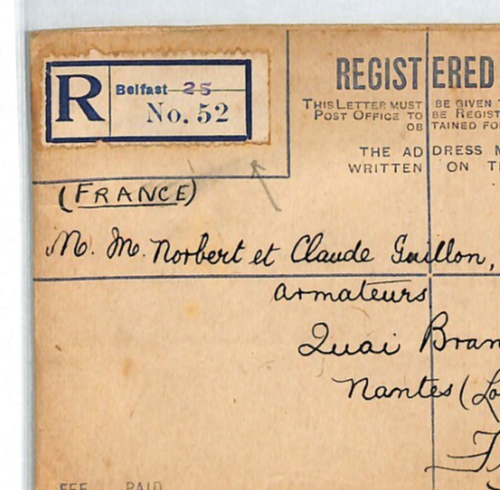 R Belfast 25
No. 52
REGISTERED
THIS LETTER MUST BE GIVEN
POST OFFICE TO BE REGIST
OBTAINED FO
THE ADDRESS M
WRITTEN ON T
(FRANCE)
M. M. Norbert et Claude Guillon,
armateurs
Quai Bran
Nantes (Lo
FEE PAID